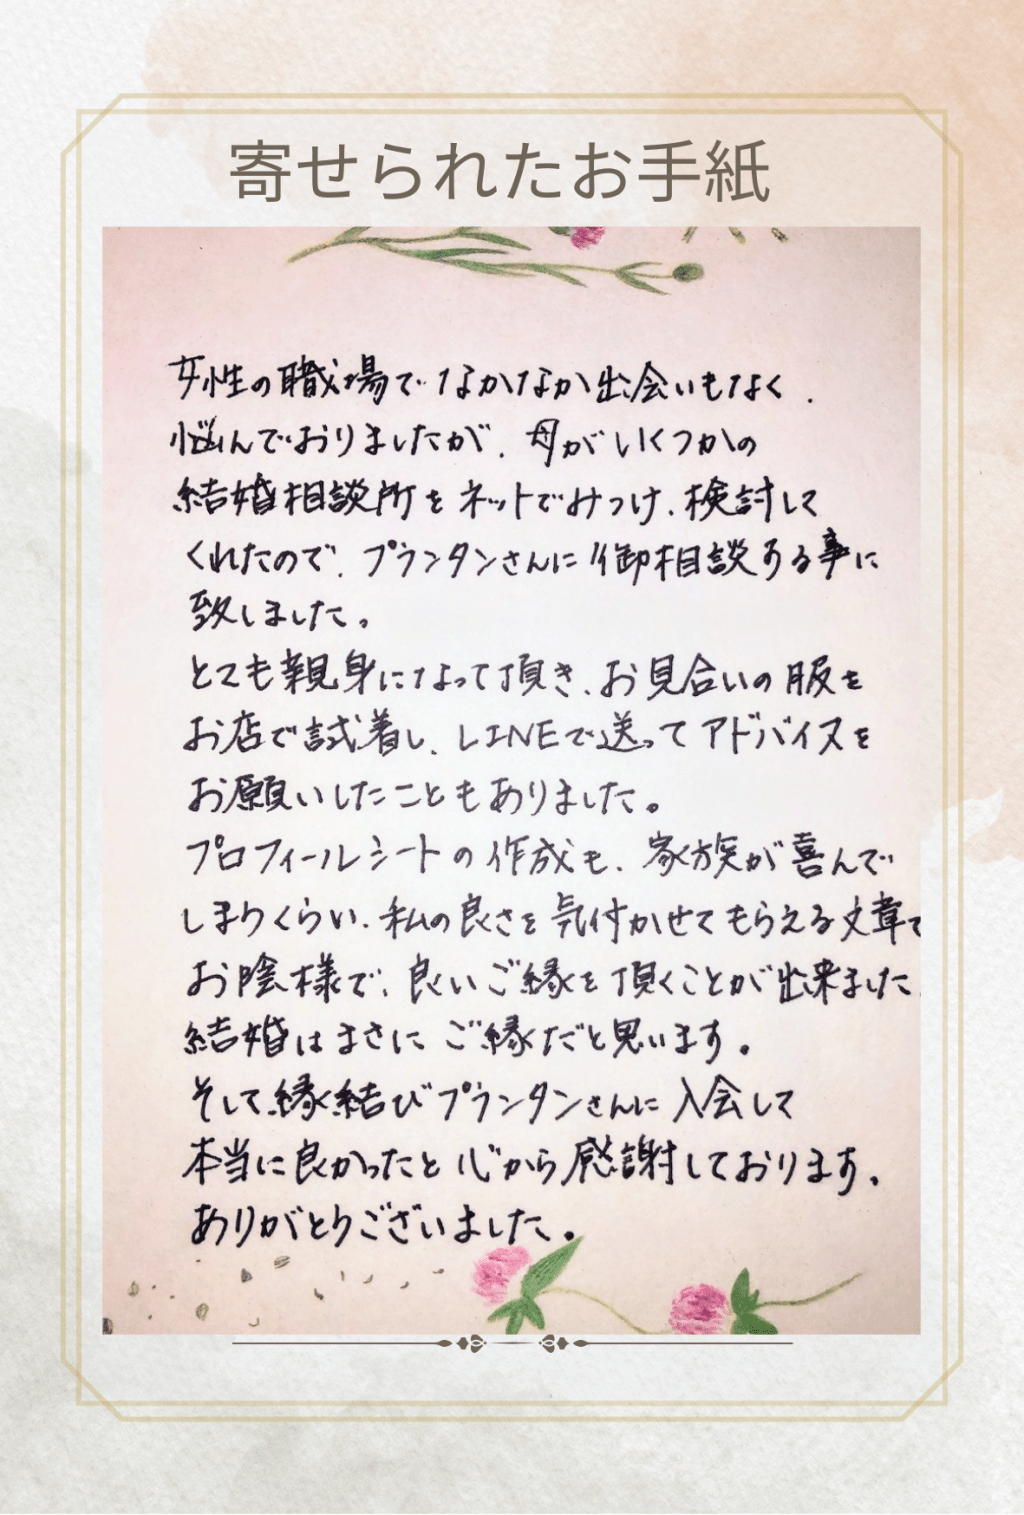 寄せられたお手紙
女性の職場でなかなか出会いもなく、
悩んでおりましたが、母がいくつかの
結婚相談所をネットでみつけ、検討して
くれたので、プランタンさんに御相談する事に
致しました。
とても親身になって頂き、お見合いの服を
お店で試着し、LINEで送ってアドバイスを
お願いしたこともありました。
プロフィールシートの作成も、家族が喜んで
しまうくらい、私の良さを気付かせてもらえる文章で
お陰様で、良いご縁を頂くことが出来ました
結婚はまさにご縁だと思います。
そして縁結びプランタンさんに入会して
本当に良かったと心から感謝しております。
ありがとうございました。